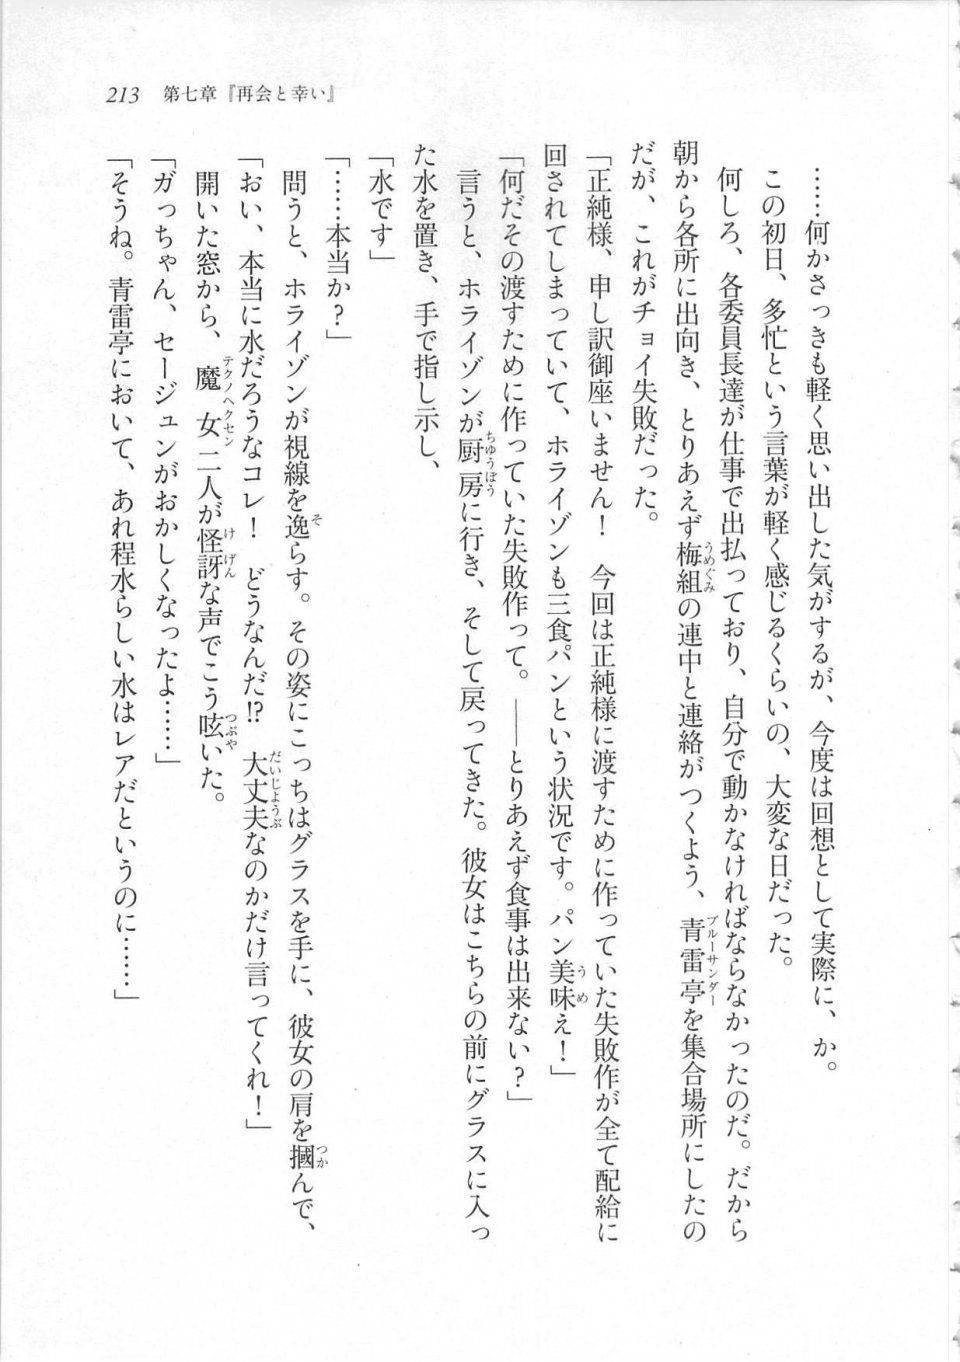 213　第七章『再会と幸い』
……何かさっきも軽く思い出した気がするが、今度は回想として実際に、か。
この初日、多忙という言葉が軽く感じるくらいの、大変な日だった。
何しろ、各委員長達が仕事で出払っており、自分で動かなければならなかったのだ。だから
朝から各所に出向き、とりあえず梅組の連中と連絡がつくよう、青雷亭を集合場所にしたの
だが、これがチョイ失敗だった。
「正純様、申し訳御座いません！　今回は正純様に渡すために作っていた失敗作が全て配給に
回されてしまっていて、ホライゾンも三食パンという状況です。パン美味え！」
「何だその渡すために作っていた失敗作って。――とりあえず食事は出来ない？」
言うと、ホライゾンが厨房に行き、そして戻ってきた。彼女はこちらの前にグラスに入っ
た水を置き、手で指し示し、
「水です」
「……本当か？」
問うと、ホライゾンが視線を逸らす。その姿にこっちはグラスを手に、彼女の肩を摑んで、
「おい、本当に水だろうなコレ！　どうなんだ!?　大丈夫なのかだけ言ってくれ！」
開いた窓から、魔女二人が怪訝な声でこう呟いた。
「ガっちゃん、セージュンがおかしくなったよ……」
「そうね。青雷亭において、あれ程水らしい水はレアだというのに……」